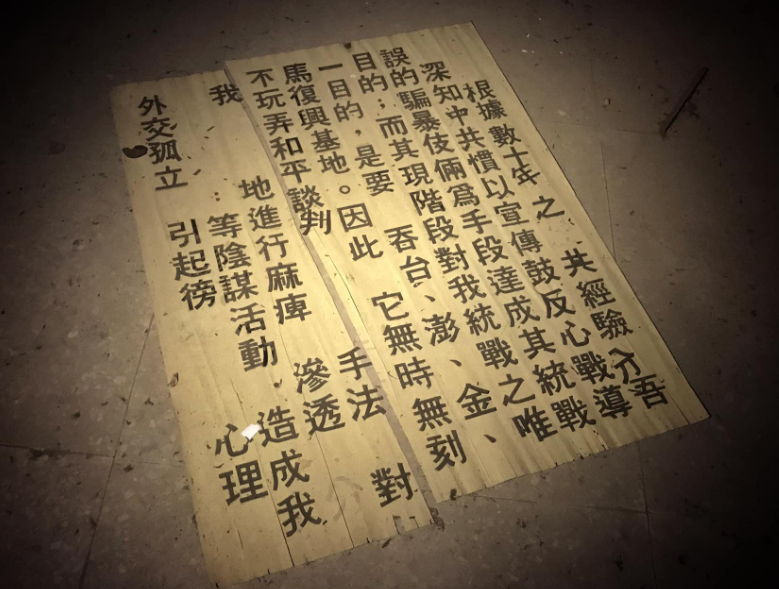 根據數十年之 共經驗 介吾
深知中共慣以宣傳鼓反心戰導
誤的騙暴伎倆爲手段達成其統戰
目的；而其現階段對我統戰之唯
一目的，是要 吞台、澎、金、
馬復興基地。因此 它無時無刻
不玩弄和平談判 手法 對
我 地進行麻痺 滲透
等陰謀活動 造成我
外交孤立 引起徬 心理